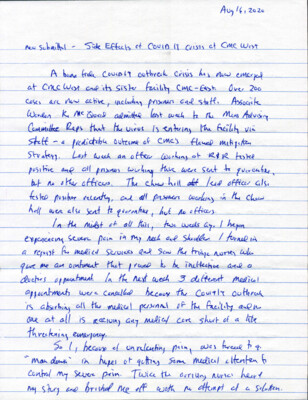 Aug 16, 2020
new submittal - Side Effects of Covid 19 Crisis at CMC West
A bona fide Covid19 outbreak crisis has now emerged
at CMC West and its sister facility CMC-East. Over 200
cases are now active, including prisoners and staff. Associate
Warden last week to the Men Advising
Committee Reps that the virus is entering the facility via
staff - a predictable outcome of CMC's flawed mitigation
strategy. Last week an officer working at tested
positive and all prisoners working there were sent to quarantine,
but no other officers. The chow hall lead officer also
tested positive recently, and all prisoners working in the chow
hall were also sent to quarantine, but no officers.
In the midst of all this, two weeks ago I began
experiencing severe pain in my neck and shoulder. I turned in
a request for medical services and saw the triage nurse who
gave me an ointment that proved to be ineffective and a
doctors appointment. In the next week 3 different medical
appointments were cancelled because the Covid19 outbreak
is absorbing all the medical personnel of the facility and no
one at all is receiving any medical care short of a life
threatening emergency.
So I, because of unrelenting pain, was forced to go
"man down" in hopes of getting some medical attention to
control my severe pain. Twice the arriving nurses heard
my story and brushed me off with no attempt at a solution.